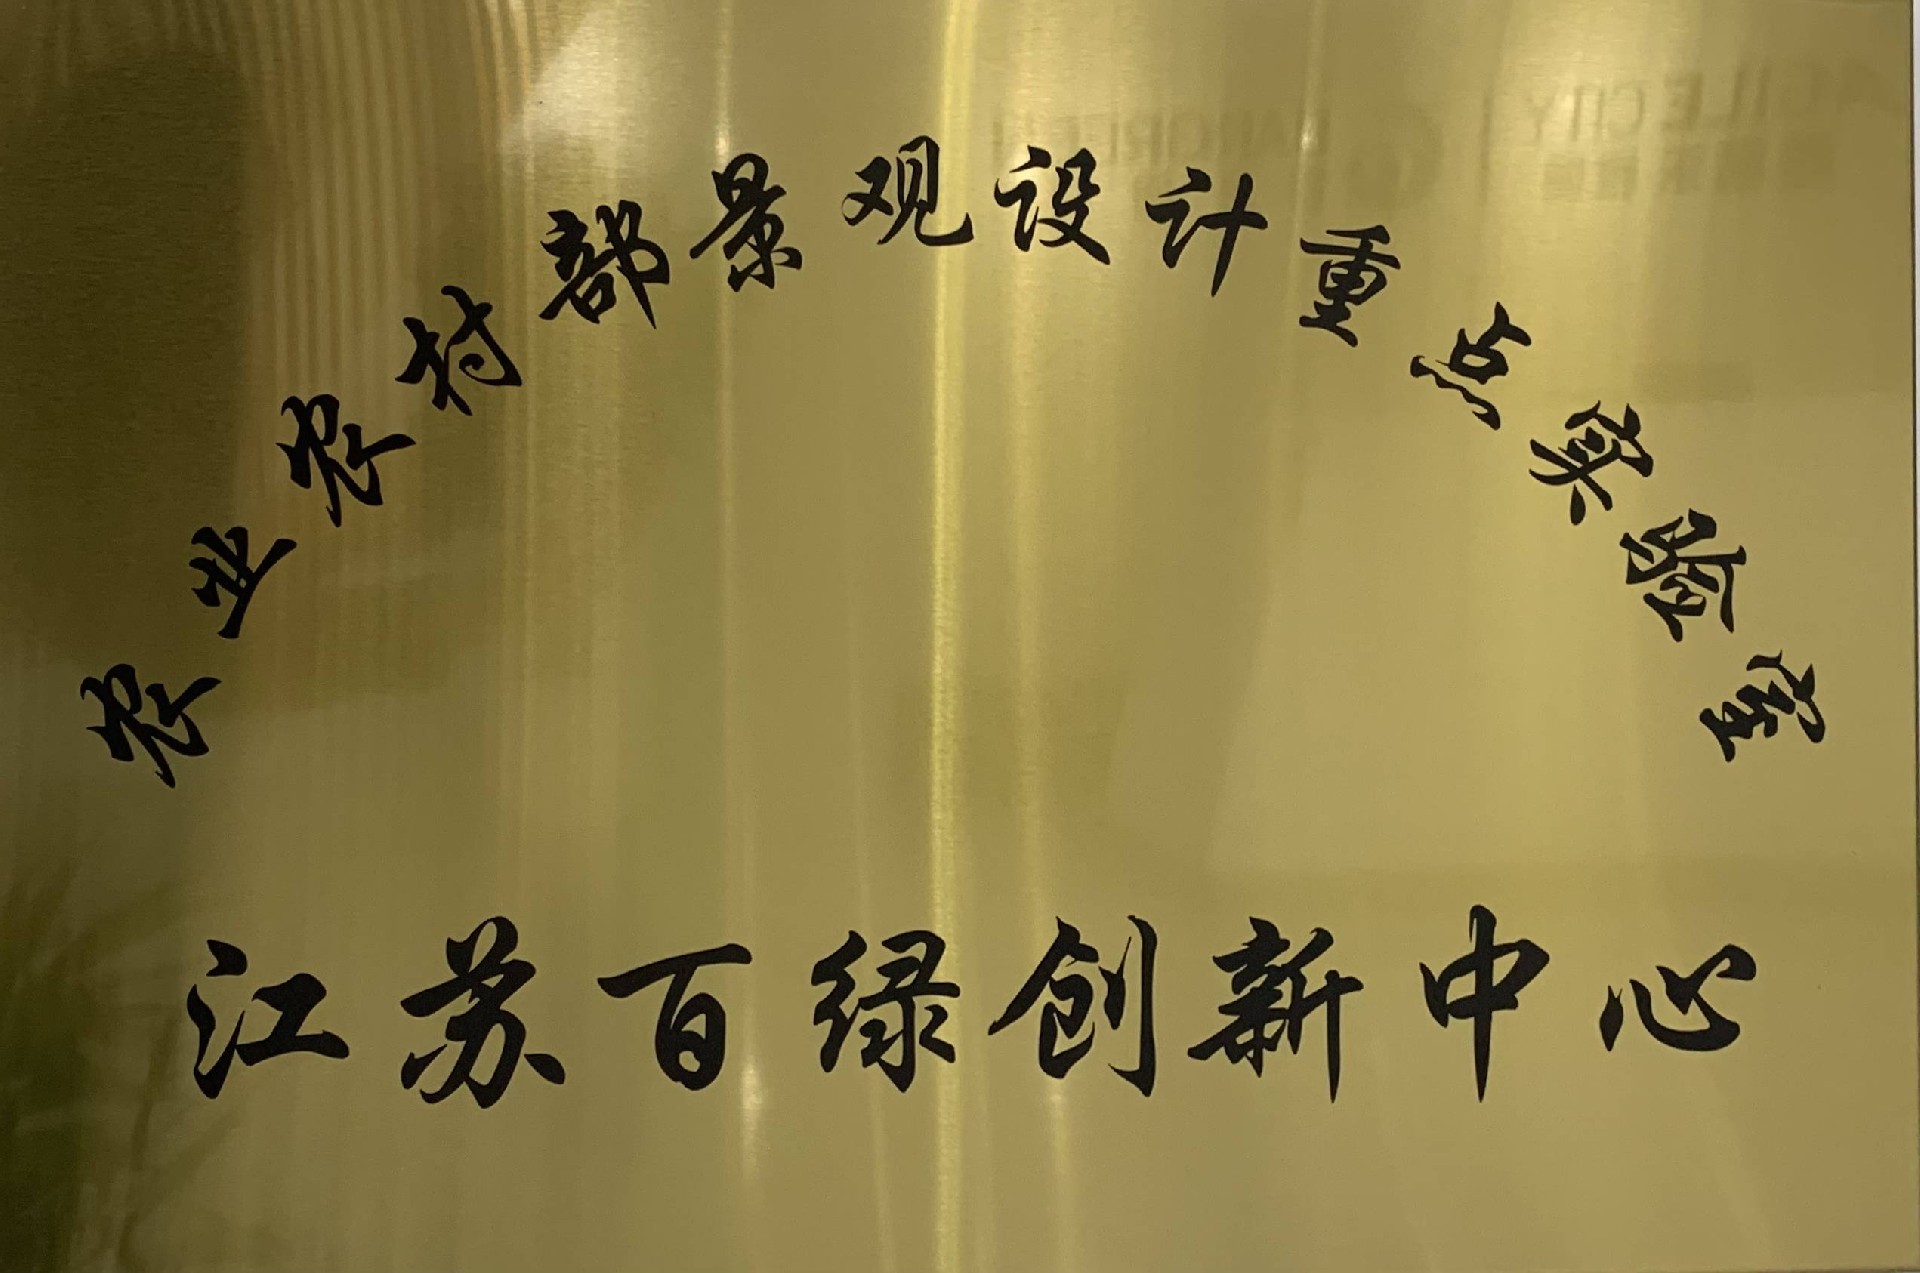 农业农村部景观设计重点实验室
江苏百绿创新中心